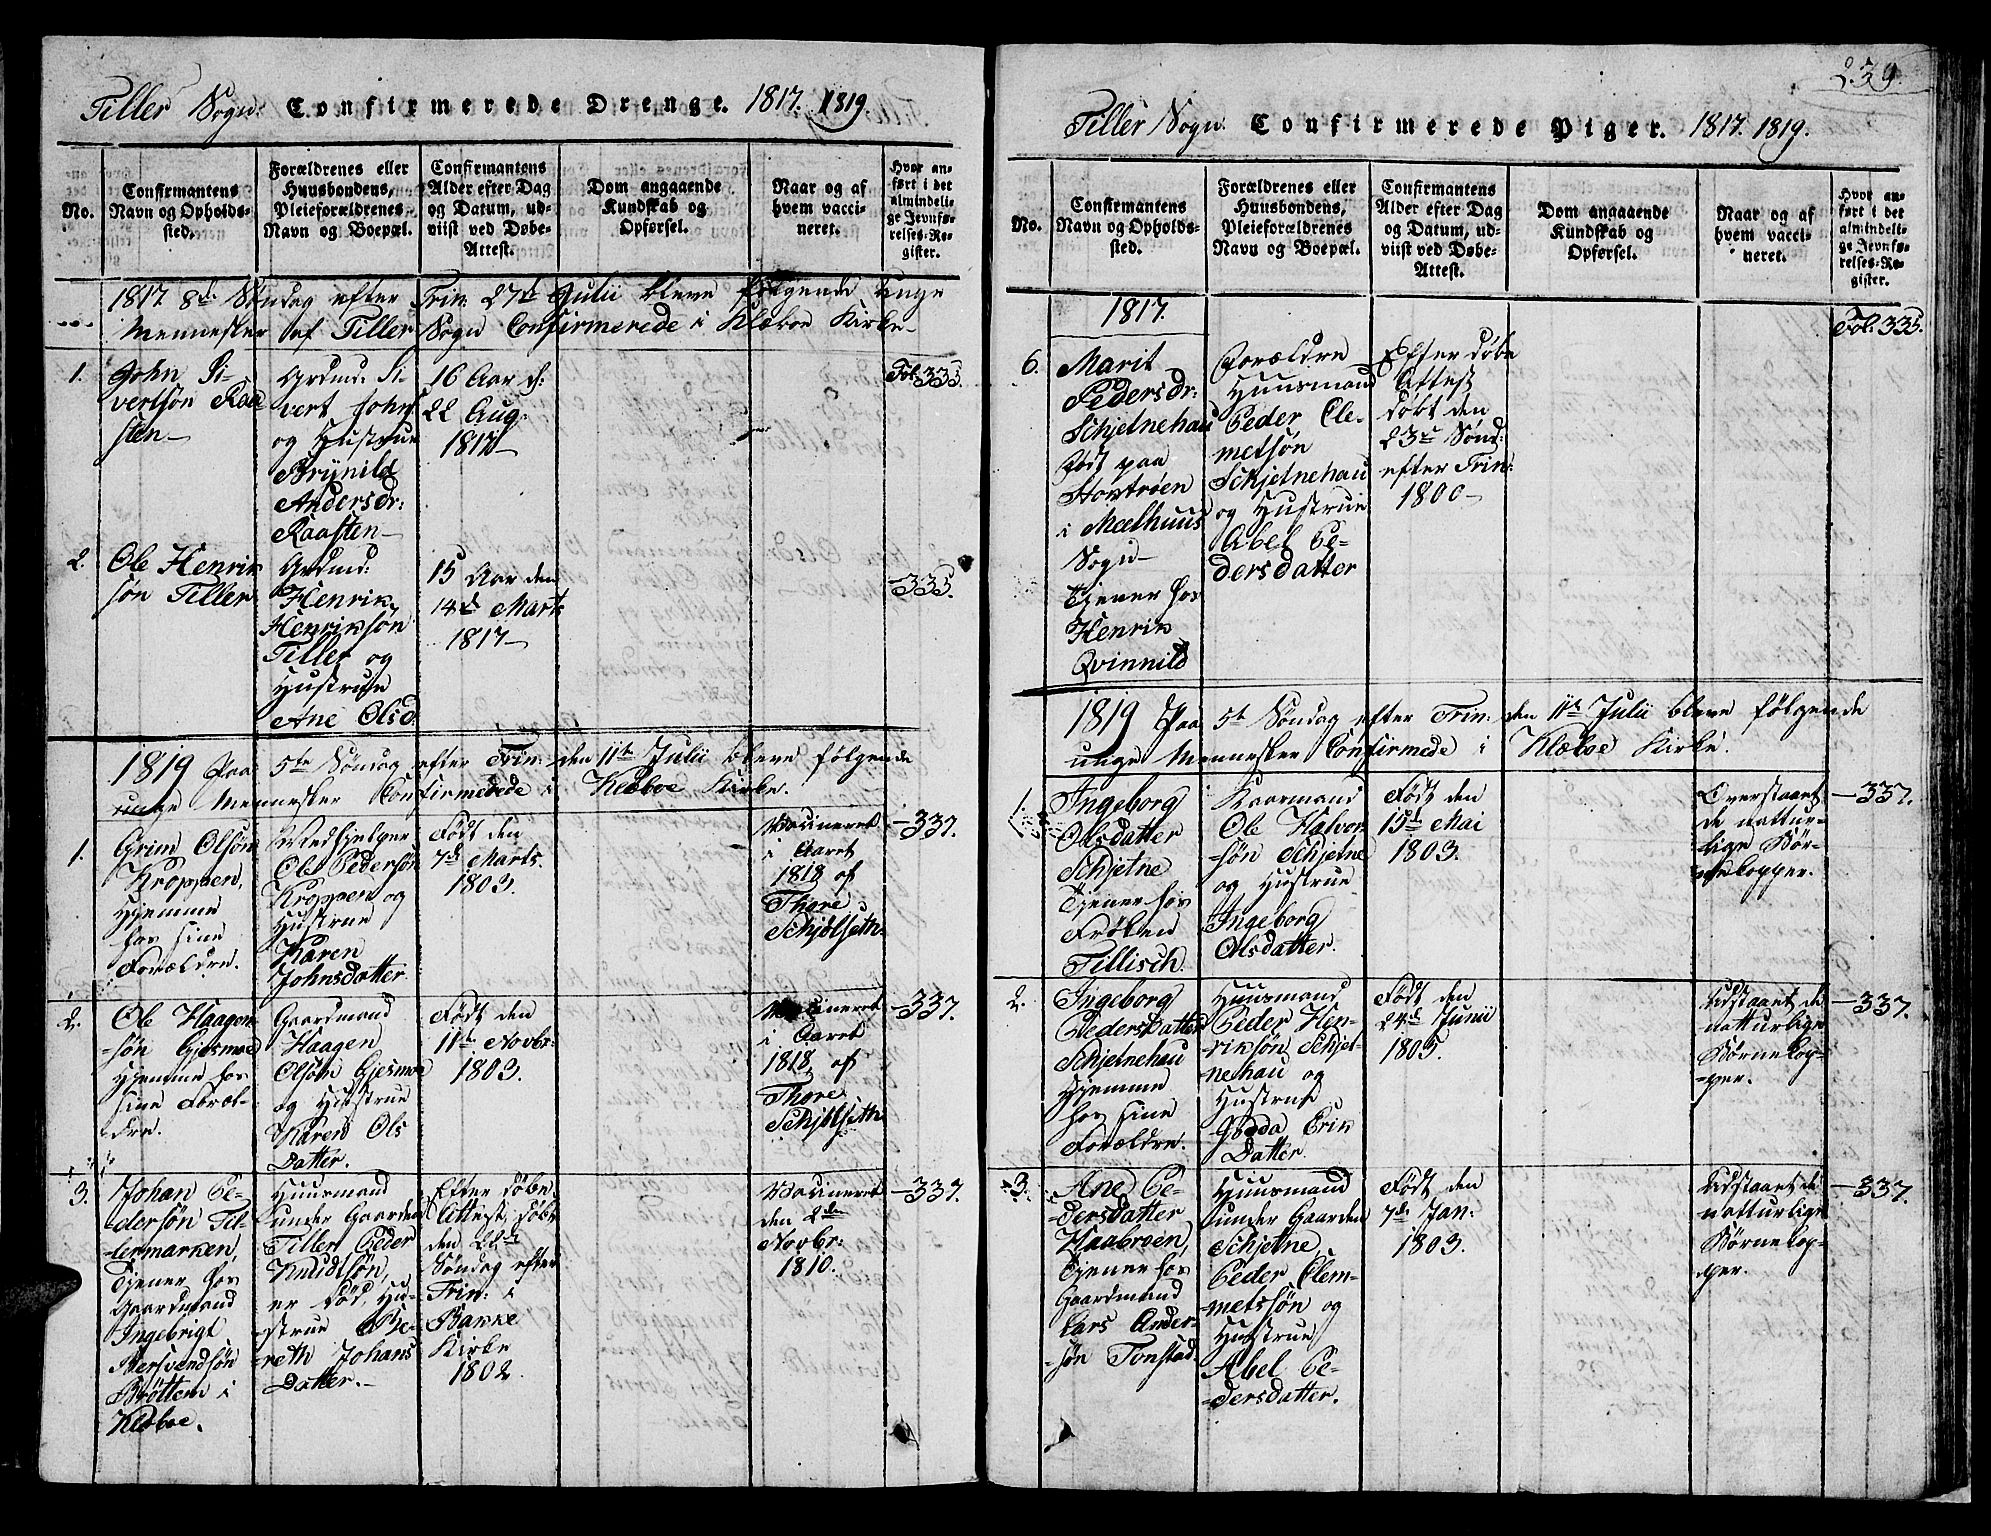 Tiller Sogn. Confirmerede Drenge. 1817. 1819.
No.
Confirmantens
Navn og Opholds-
sted.
Forældrenes eller
Huusbondens,
Pleieforældrenes
Navn og Boepæl.
Confirmantens
Alder efter Dag
og Datum, ud-
viist ved Døbe-
Attest.
Dom angaaende
Kundskab og
Opførsel.
Naar og af
hvem vacci-
neret.
Hvor an-
ført i det
almindeli-
ge Jevnfø-
relses-Re-
gister.
1817 8de Søndag efter Trin. 27de Julii bleve følgende unge
Mennesker af Tiller Sogn Confirmerede i Klæboe Kirke
1.
John Si-
vertsøn Raa
sten
Grdmd. Si-
vert Johns.
og Hustrue
Brynild
Andersdr:
Raasten
16 Aar d:
22 Aug:
1817
Fol. 335.
2.
Ole Henrik
søn Tiller
Grdmd:
Henrik
Henriksøn
Tiller og
Hustrue
Ane Olsd.
15 Aar den
14de Marts
1817
335.
1819 Paa 5te Søndag efter Trin: den 11te Julii bleve følgende
unge Mennesker Confirmerede i Klæboe Kirke.
1.
Grim Olsøn
Kroppen,
Hjemme
hos sine
Forældre.
Medhjelper
Ole Pedersøn
Kroppen og
Hustrue
Karen
Johnsdatter
Født den
7de Marts
1803.
Vaccineret
i Aaret
1818 af
Thore
Schjølseth
337.
2.
Ole Haagen-
søn Gjesmoe
Hjemme hos
sine Foræl-
dre.
Gaardmand
Haagen
Olsøn Gjesmoe
og Hustrue
Karen Ols
Datter.
Født den
11te Novbr:
1803.
Vaccineret
i Aaret
1818 af
Thore
Schjølseth
337.
3.
Johan Pe-
dersøn Til-
lermarken,
Tjener hos
Gaardmand
Ingebrigt
Bersvendsøn
Brøttem i
Klæboe.
Huusmand
under Gaarden
Tiller Peder
Knudtsøn,
er død, Hu-
strue Be-
reth Johans
Datter.
Efter Døbe-
Attest, døbt
den 22de
Søndag efter
Trin: i
Bakke
Kirke
1802.
Vaccineret
den 2den
Novbr:
1810.
337.
239.
Tiller Sogn. Confirmerede Piger. 1817. 1819.
No.
Confirmantens
Navn og Opholds-
sted.
Forældrenes eller
Huusbondens,
Pleieforældrenes
Navn og Boepæl.
Confirmantens
Alder efter Dag
og Datum, ud-
viist ved Døbe-
Attest.
Dom angaaende
Kundskab og
Opførsel.
Naar og af
hvem vacci-
neret.
Hvor an-
ført i det
almindeli-
ge Jevnfø-
relses-Re-
gister.
1817.
6.
Marit
Pedersdr:
Schjetnehau
født paa
i Mælhuus
Sogn
Tjener hos
Henrik
Qvinnild
Forældre
Huusmand
Peder Cle-
metsøn
Schjetnehau
og Hustrue
Abel Pe-
dersdatter
Efter døbe
Attest
døbt den
23de Sønd:
efter Trin:
1800
Fol. 335.
1819 Paa 5te Søndag efter Trin: den 11te Julii bleve følgende
unge Mennesker Confirmede i Klæboe Kirke.
1.
Ingeborg
Olsdatter
Schjetne
Tjener hos
Frøken
Tillisch.
Gaarmand
Ole Halvor
-søn Schjetne
og Hustrue
Ingeborg
Olsdatter.
Født den
15de Mai
1803.
Overstaaet
de nattur-
lige Bør-
nekopper.
337.
2.
Ingeborg
Pedersdatter
Schjetnehau
Hjemme
hos sine
Forældre.
Huusmand
Peder Hen-
riksøn Schjet-
nehau og
Hustrue
Gødda Erik
Datter.
Født den
24de Junii
1805.
Udstaaet de
natturlige
Børnekop-
per.
337.
3.
Ane Pe-
dersdatter
Haabroen,
Tjener hos
Gaardmand
Lars Ander-
søn Tonstad.
Huusmand
under Gaarden
Schjetne,
Peder Clem-
metssøn og
Hustrue
Abel Pe-
dersdatter.
Født den
7de Jan:
1803.
Udstaaet de
natturlige
Børnekop-
per.
337.